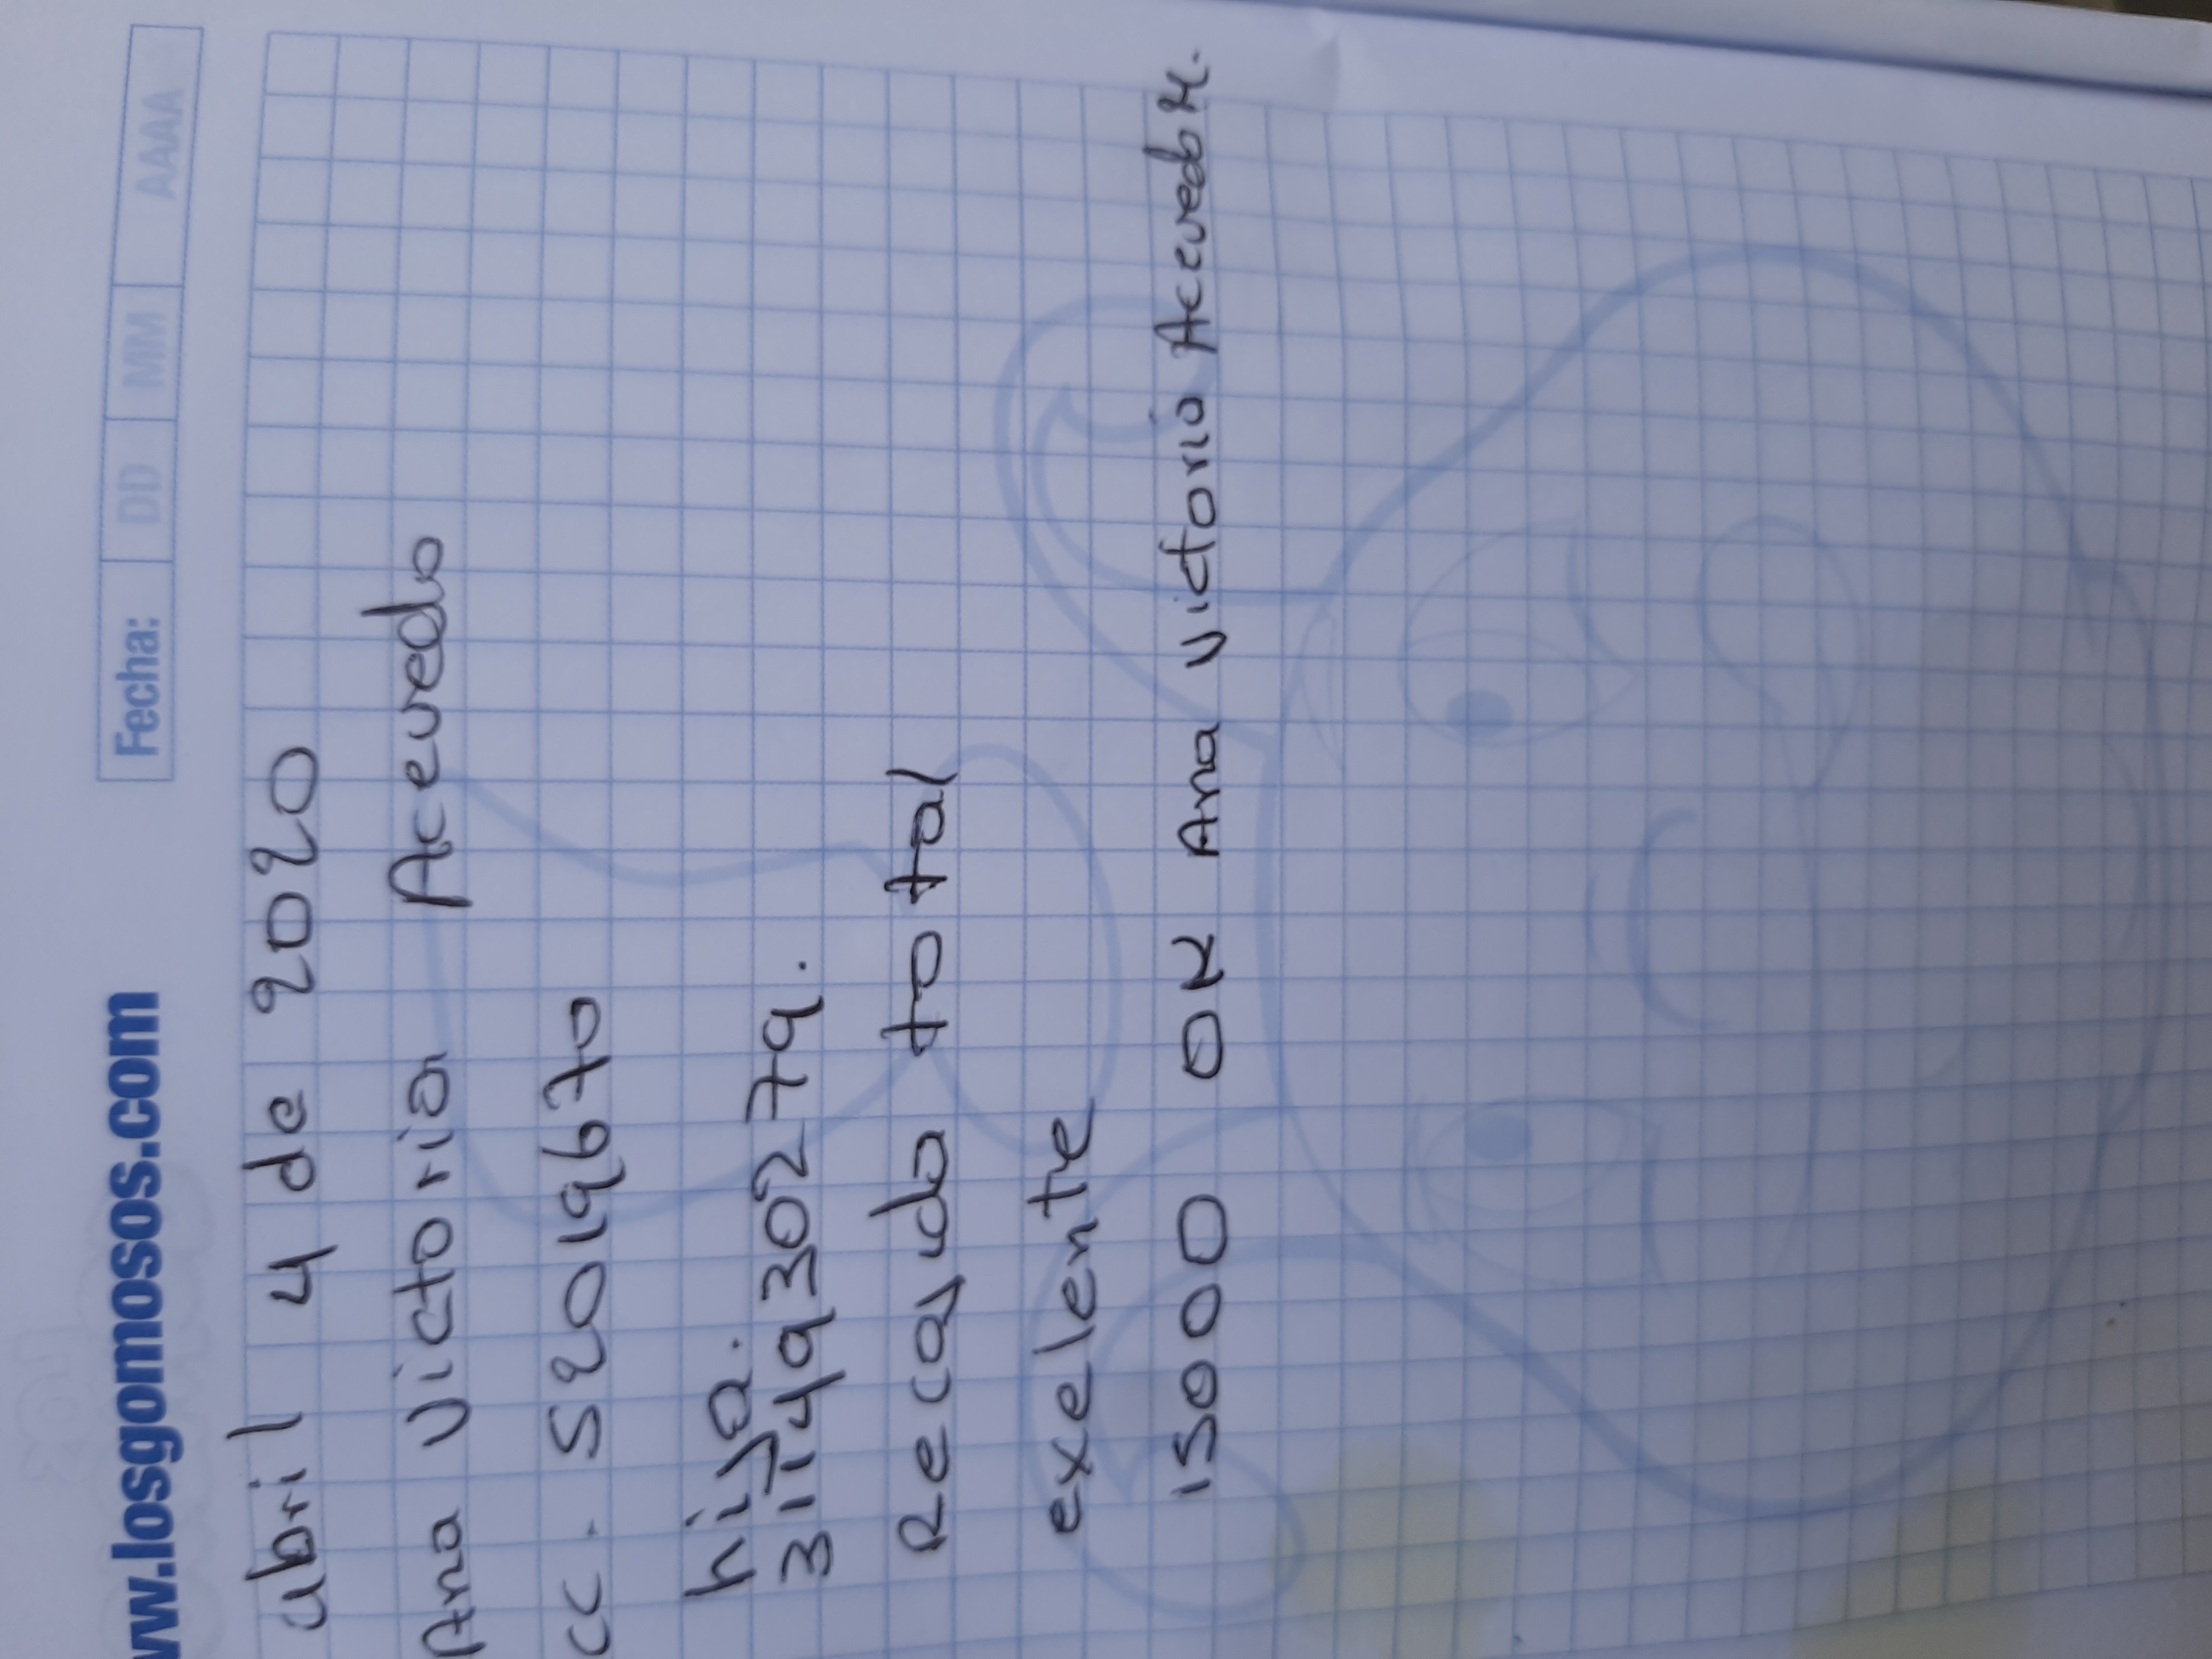 w.losgomosos.com Fecha: DD MM AAAA
abril 4 de 2020
Ana Victoria Acevedo
cc. 52019670
hija.
3114930279.
Recaudo total
exelente
15000 OK Ana Victoria Acevedo M.